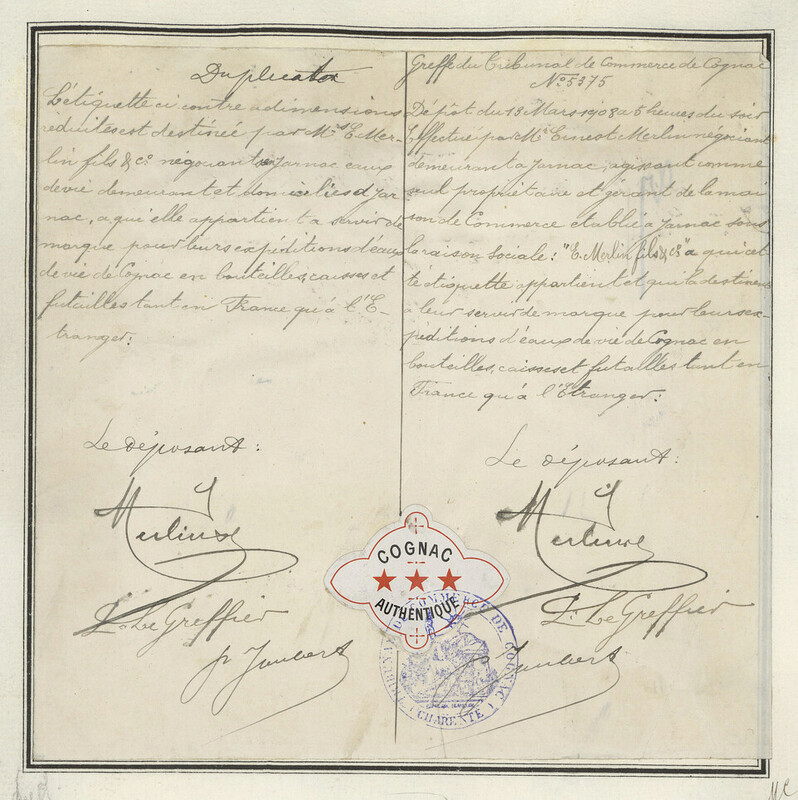 Duplicata
L'étiquette ci contre a dimensions
réduites est destinée par Mrs E. Mer-
lin fils & Co négociants Jarnac eaux
de vie demeurant et domiciliés d Jar
nac, a qui elle appartient a servir de
marque pour leurs expéditions d'eaux
de vie de Cognac en bouteilles, caisses et
futailles tant en France qu'à l'E-
tranger:
Le déposant:
Merlin
Le Greffier
Joubert
Greffe du Tribunal de Commerce de Cognac
No 5375
Dépôt du 13 Mars 1908 a 5 heures du soir
Effectué par Mr Ernest Merlin négociant
demeurant a Jarnac, agissant comme
seul propriétaire et gérant de la mai
son de Commerce etablie a Jarnac sous
la raison Sociale: "E. Merlin fils & Co" a qui cet
te étiquette appartient et qui la destinent
a leur servir de marque pour leurs ex-
péditions d'eaux de vie de Cognac en
bouteilles, caisses et futailles tant en
France qu'a l'Etranger:
Le déposant:
Merlin
Le Greffier
Joubert
COGNAC
AUTHENTIQUE
TRIBUNAL DE COMMERCE DE COGNAC
(CHARENTE)